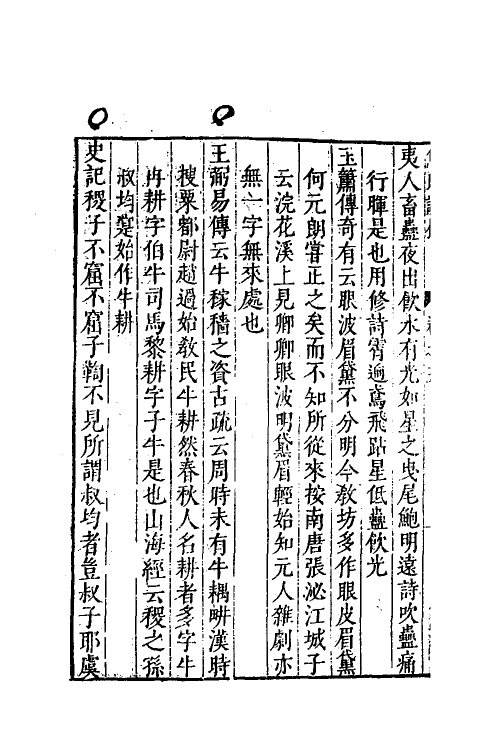 夷人畜蠱夜出飲水有光如星之曳尾鮑明遠詩吹蠱痛
行暉是也用修詩霄逈鳶飛跕星低蠱飲光
玉簫傳奇有云眼波眉黛不分明今教坊多作眼皮眉黛
何元朗嘗正之矣而不知所從來按南唐張泌江城子
云浣花溪上見卿卿眼波明黛眉輕始知元人雜劇亦
無一字無來處也
王弼易傳云牛稼穡之資古疏云周時未有牛耦畊漢時
搜粟都尉趙過始敎民牛耕然春秋人名耕者多字牛
冉耕字伯牛司馬黎耕字子牛是也山海經云稷之孫
叔均寔始作牛耕
史記稷子不窟不窟子鞫不見所謂叔均者豈叔子耶虞